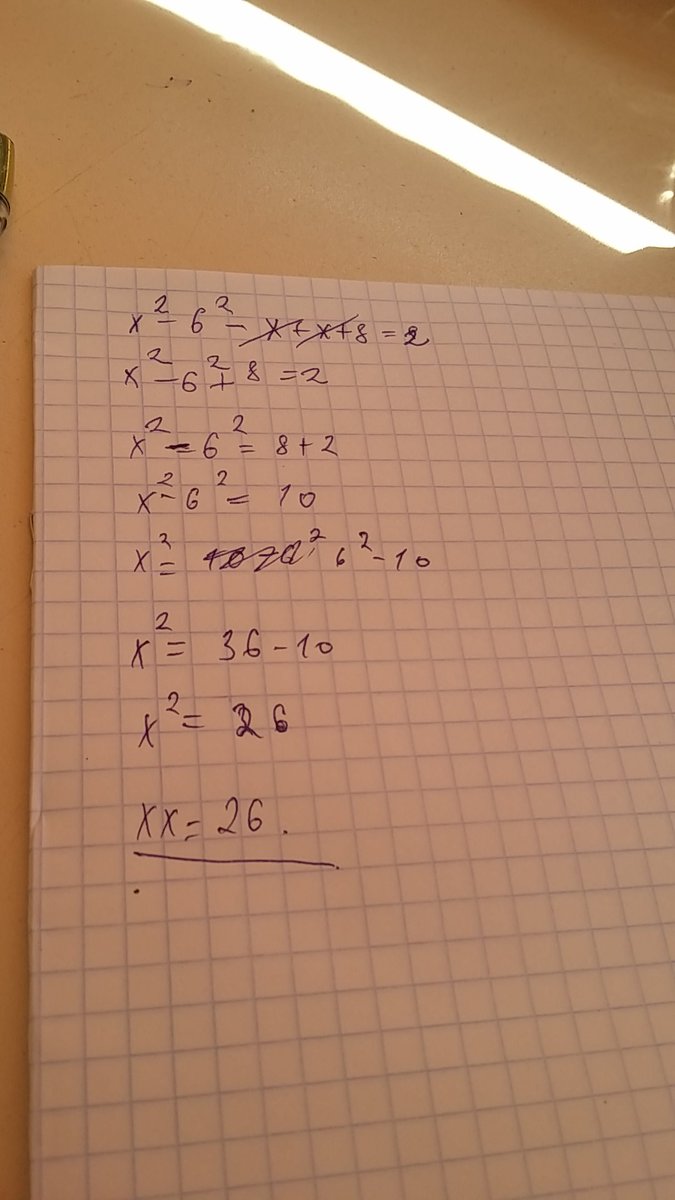 x² - 6² - x + x + 8 = 2
x² - 6² + 8 = 2
x² - 6² = 8 + 2
x² - 6² = 10
x² = 6² - 10
x² = 36 - 10
x² = 26
xx = 26.